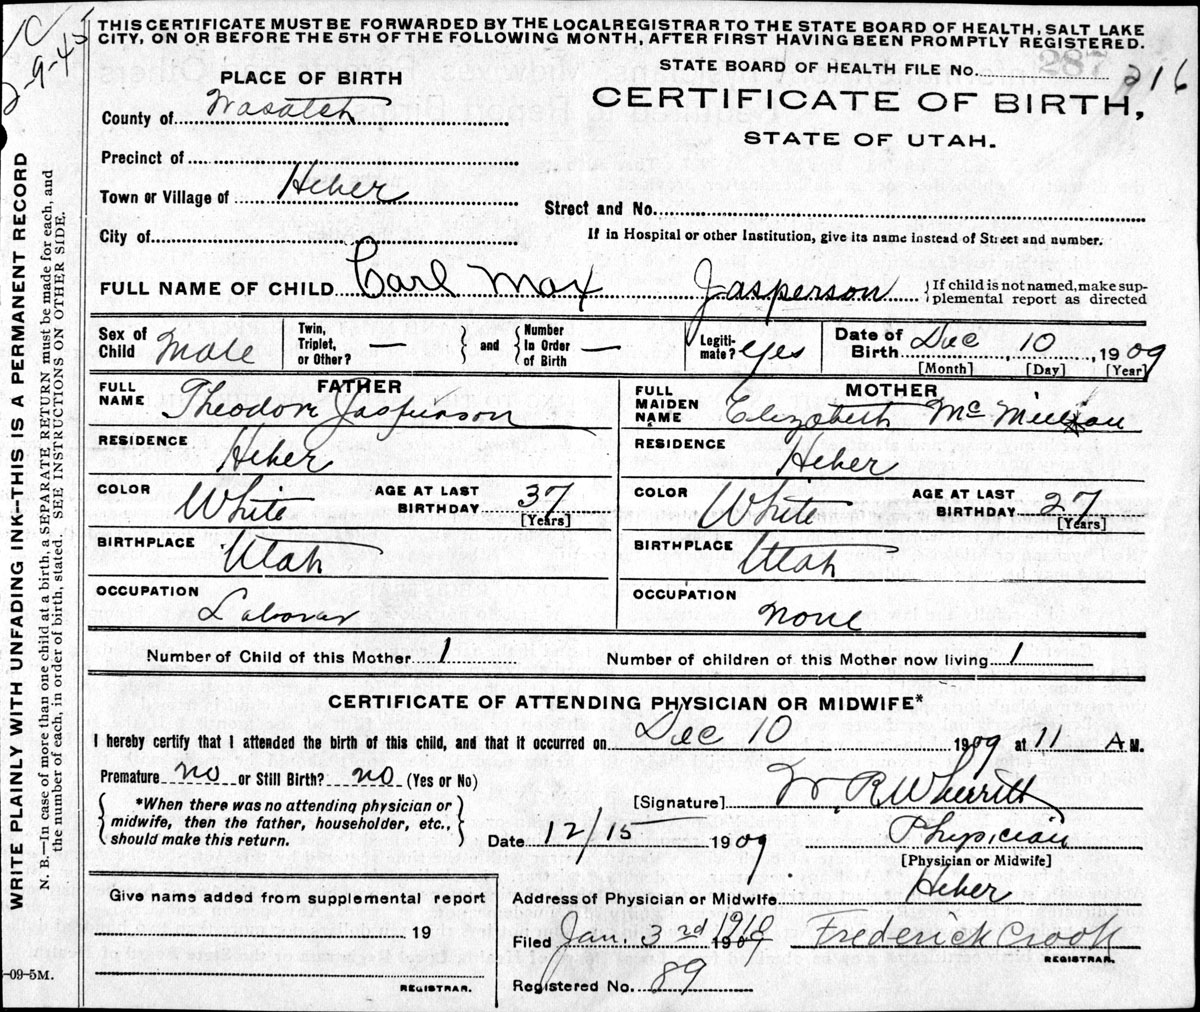 THIS CERTIFICATE MUST BE FORWARDED BY THE LOCAL REGISTRAR TO THE STATE BOARD OF HEALTH, SALT LAKE
CITY, ON OR BEFORE THE 5TH OF THE FOLLOWING MONTH, AFTER FIRST HAVING BEEN PROMPTLY REGISTERED.
9-45
STATE BOARD OF HEALTH FILE No. 287 216
PLACE OF BIRTH
CERTIFICATE OF BIRTH,
STATE OF UTAH.
County of Wasatch
Precinct of
Town or Village of Heber
Street and No.
City of
If in Hospital or other Institution, give its name instead of Street and number.
FULL NAME OF CHILD Carl Max Jasperson
If child is not named, make sup-
plemental report as directed
Sex of Child Male
Twin, Triplet, or Other? —
and
Number In Order of Birth —
Legiti-mate? yes
Date of Birth Dec 10, 1909
[Month] [Day] [Year]
FATHER
FULL NAME Theodore Jasperson
RESIDENCE Heber
COLOR White
AGE AT LAST BIRTHDAY 37
[Years]
BIRTHPLACE Utah
OCCUPATION Laborer
MOTHER
FULL MAIDEN NAME Elizabeth McMillan
RESIDENCE Heber
COLOR White
AGE AT LAST BIRTHDAY 27
[Years]
BIRTHPLACE Utah
OCCUPATION None
Number of Child of this Mother 1
Number of children of this Mother now living 1
CERTIFICATE OF ATTENDING PHYSICIAN OR MIDWIFE*
I hereby certify that I attended the birth of this child, and that it occurred on Dec 10 1909 at 11 A M.
Premature no or Still Birth? no (Yes or No)
*When there was no attending physician or
midwife, then the father, householder, etc.,
should make this return.
[Signature] W. R. Wherritt
Date 12/15 1909
Physician
[Physician or Midwife]
Give name added from supplemental report
19
REGISTRAR.
Address of Physician or Midwife Heber
Filed Jan. 3rd 1910 1909 Frederick Crook
REGISTRAR.
Registered No. 89
-09-5M.
WRITE PLAINLY WITH UNFADING INK--THIS IS A PERMANENT RECORD
N. B.—In case of more than one child at a birth, a SEPARATE RETURN must be made for each, and
the number of each, in order of birth, stated. SEE INSTRUCTIONS ON OTHER SIDE.